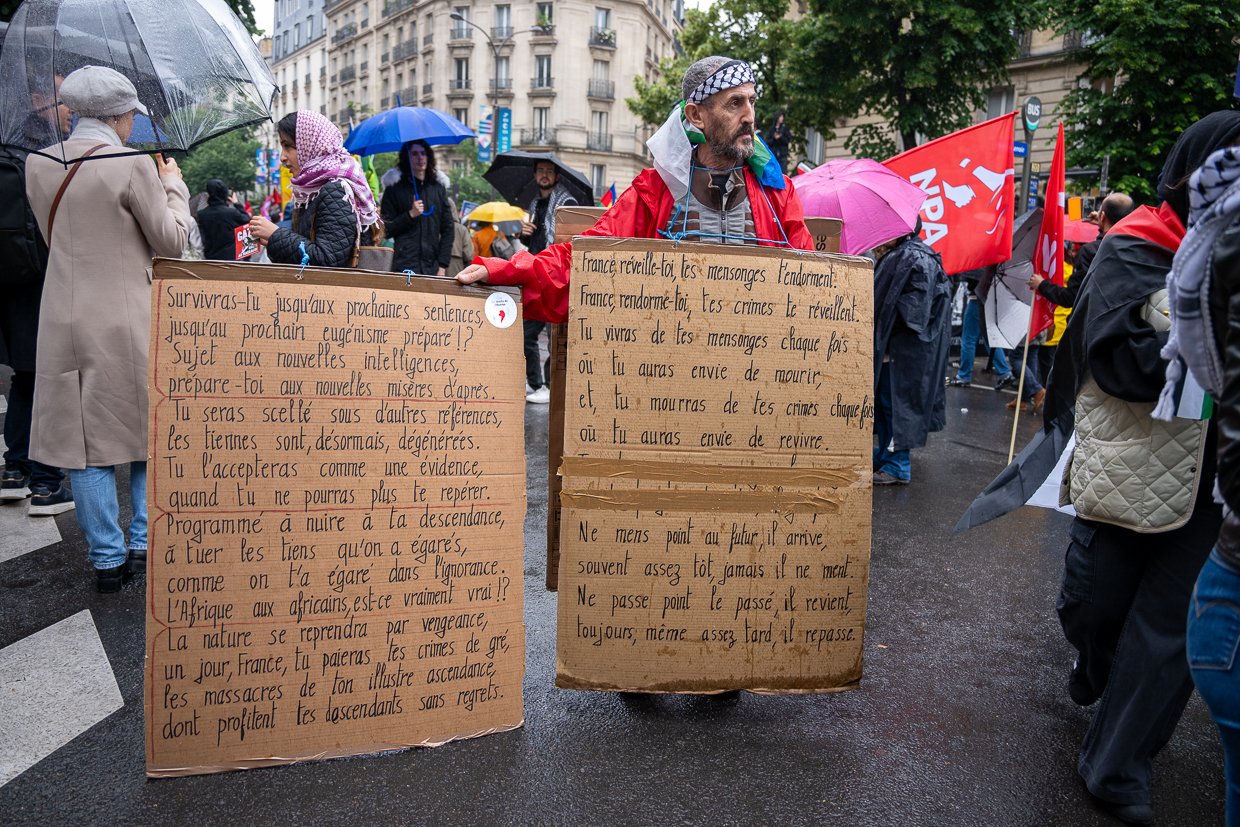 Survivras-tu jusqu'aux prochaines sentences,
jusqu'au prochain eugénisme préparé !?
Sujet aux nouvelles intelligences,
prépare-toi aux nouvelles misères d'après.
Tu seras scellé sous d'autres références,
les tiennes sont, désormais, dégénérées.
Tu l'accepteras comme une évidence,
quand tu ne pourras plus te repérer.
Programmé à nuire à ta descendance,
à tuer les tiens qu'on a égarés,
comme on t'a égaré dans l'ignorance.
L'Afrique aux africains, est-ce vraiment vrai !?
La nature se reprendra par vengeance,
un jour, France, tu paieras tes crimes de gré,
les massacres de ton illustre ascendance,
dont profitent tes descendants sans regrets.
France, réveille-toi, tes mensonges t'endorment.
France, rendorme-toi, tes crimes te réveillent.
Tu vivras de tes mensonges chaque fois
où tu auras envie de mourir,
et, tu mourras de tes crimes chaque fois
où tu auras envie de revivre.
Ne mens point au futur, il arrive,
souvent assez tôt, jamais il ne ment.
Ne passe point le passé, il revient,
toujours, même assez tard, il repasse.
NPA
BUS